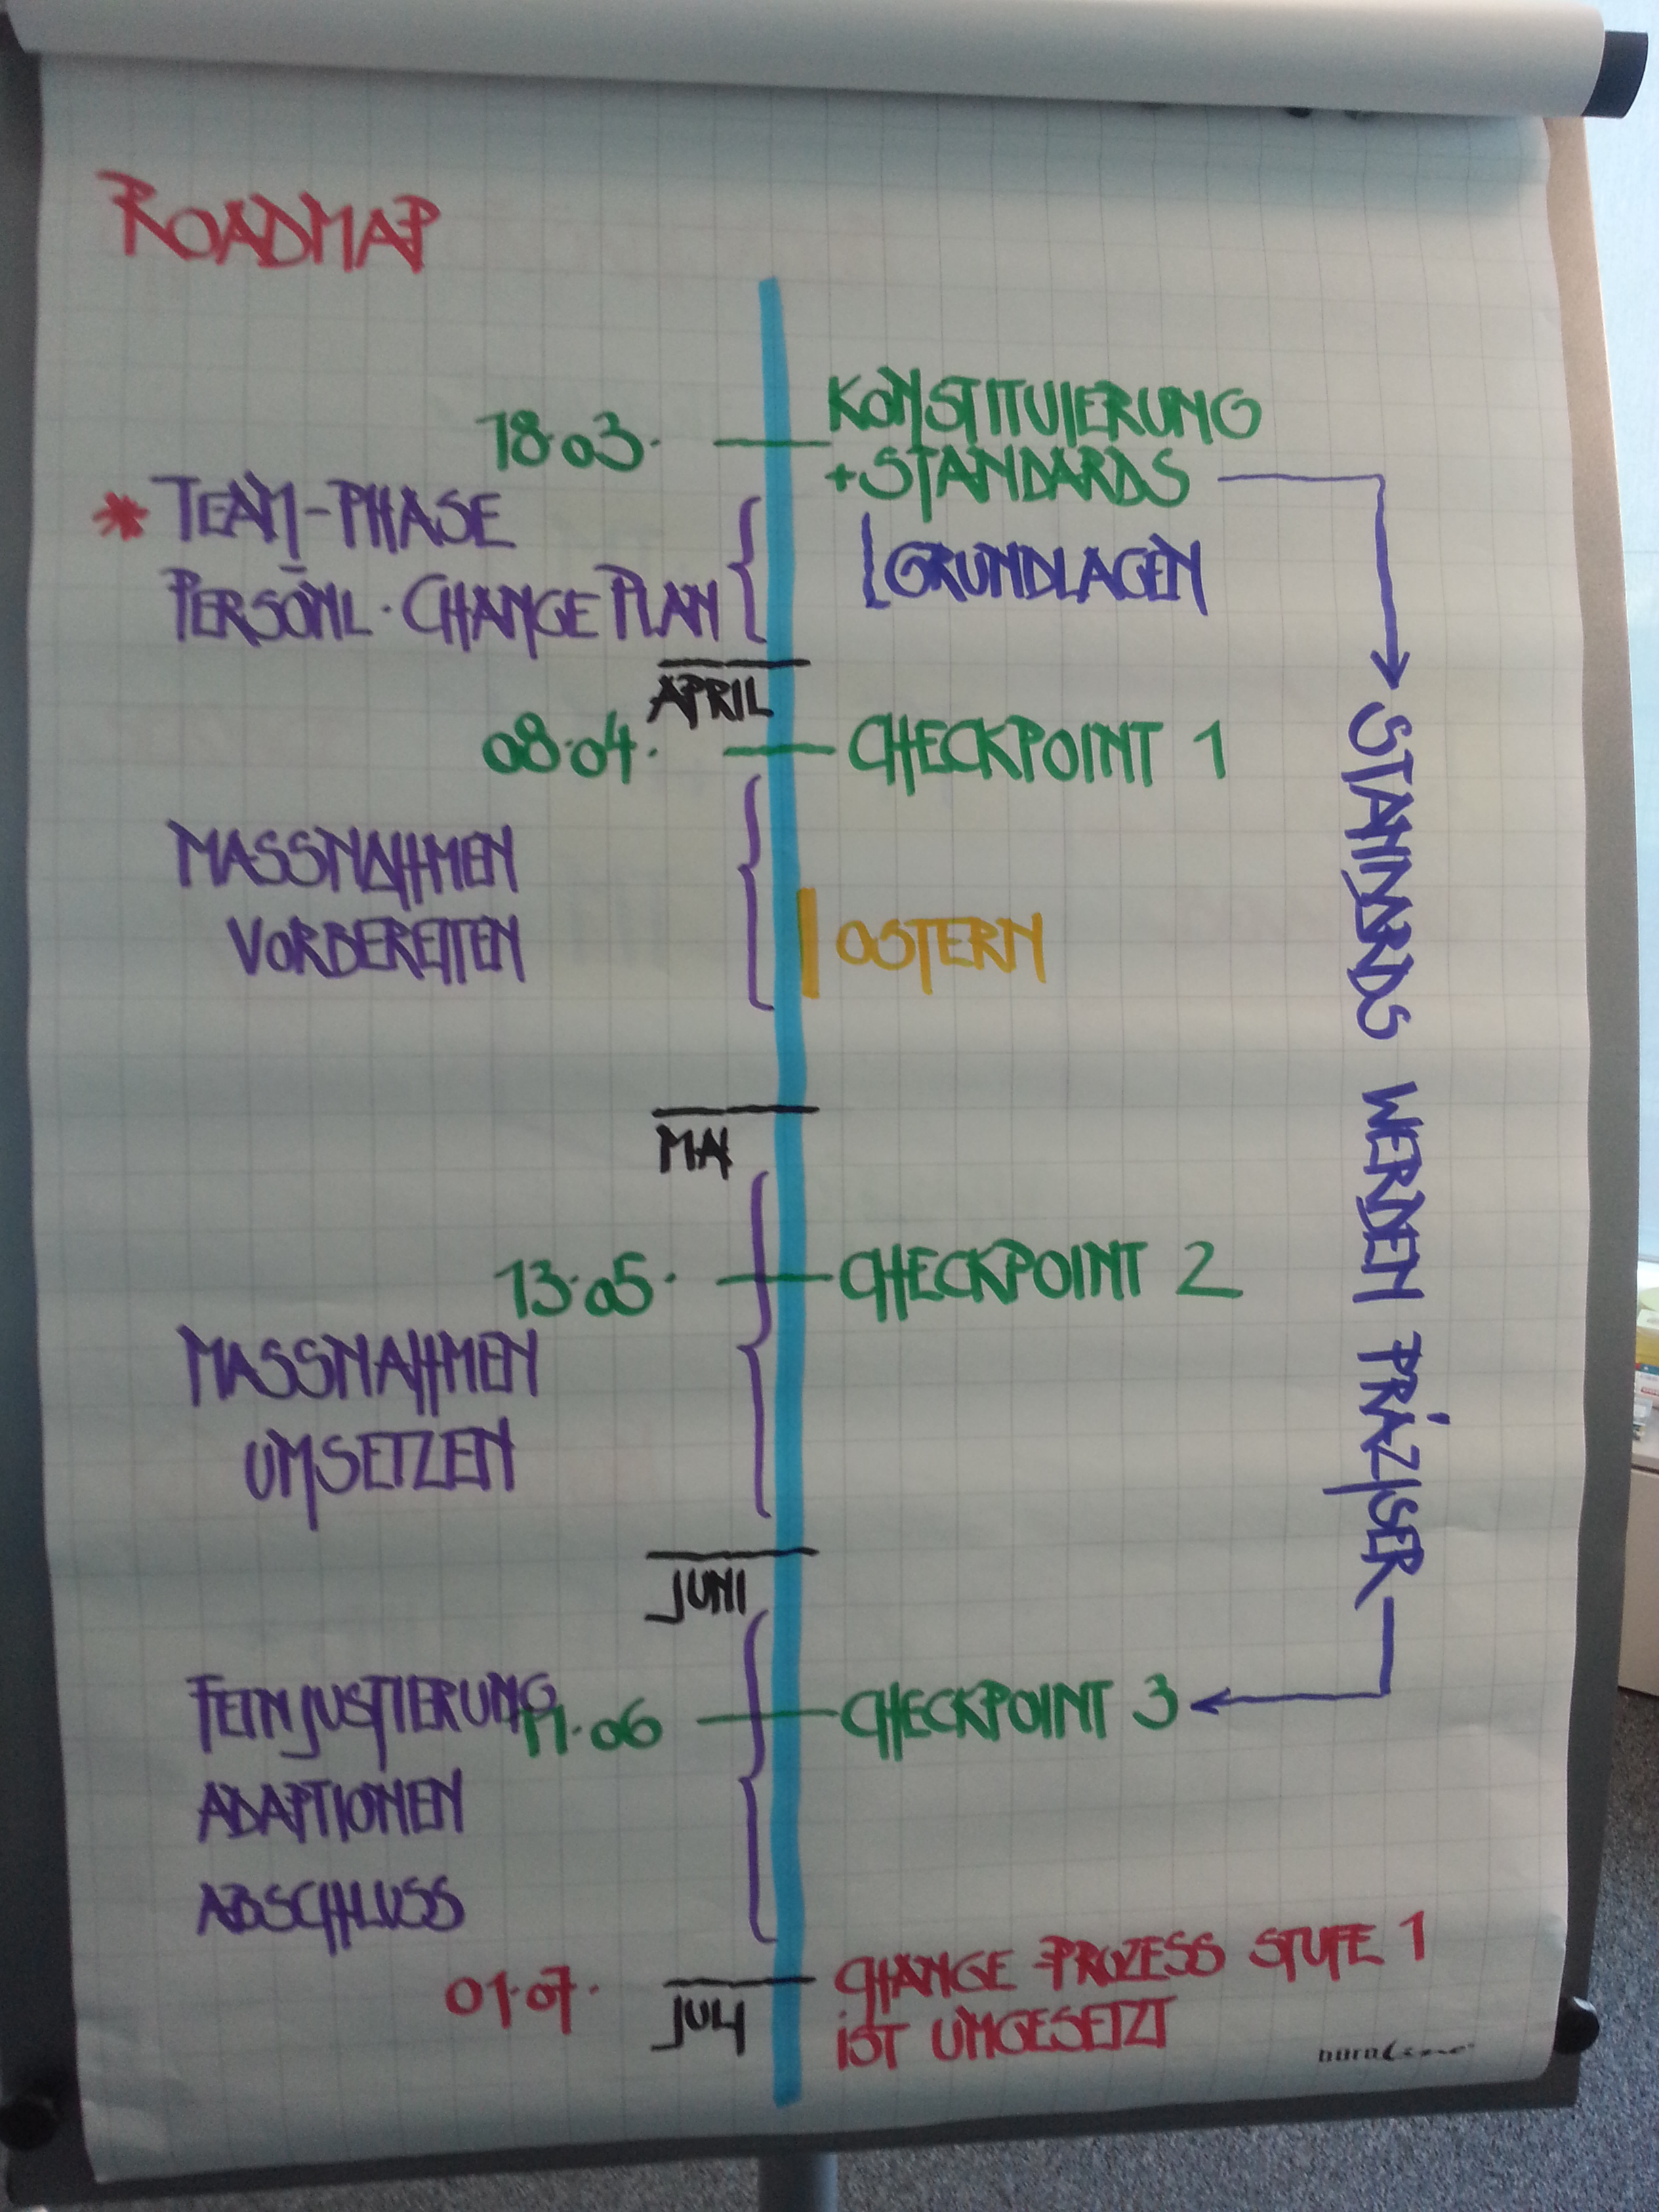 ROADMAP
18.03.
KONSTITUIERUNG
+ STANDARDS
* TEAM-PHASE
GRUNDLAGEN
PERSÖNL. CHANGE PLAN
APRIL
08.04.
CHECKPOINT 1
MASSNAHMEN
VORBEREITEN
OSTERN
MAI
13.05.
CHECKPOINT 2
MASSNAHMEN
UMSETZEN
JUNI
FEINJUSTIERUNG
11.06
CHECKPOINT 3
ADAPTIONEN
ABSCHLUSS
01.07.
JULI
CHANGE PROZESS STUFE 1
IST UMGESETZT
STANDARDS WERDEN PRÄZISER